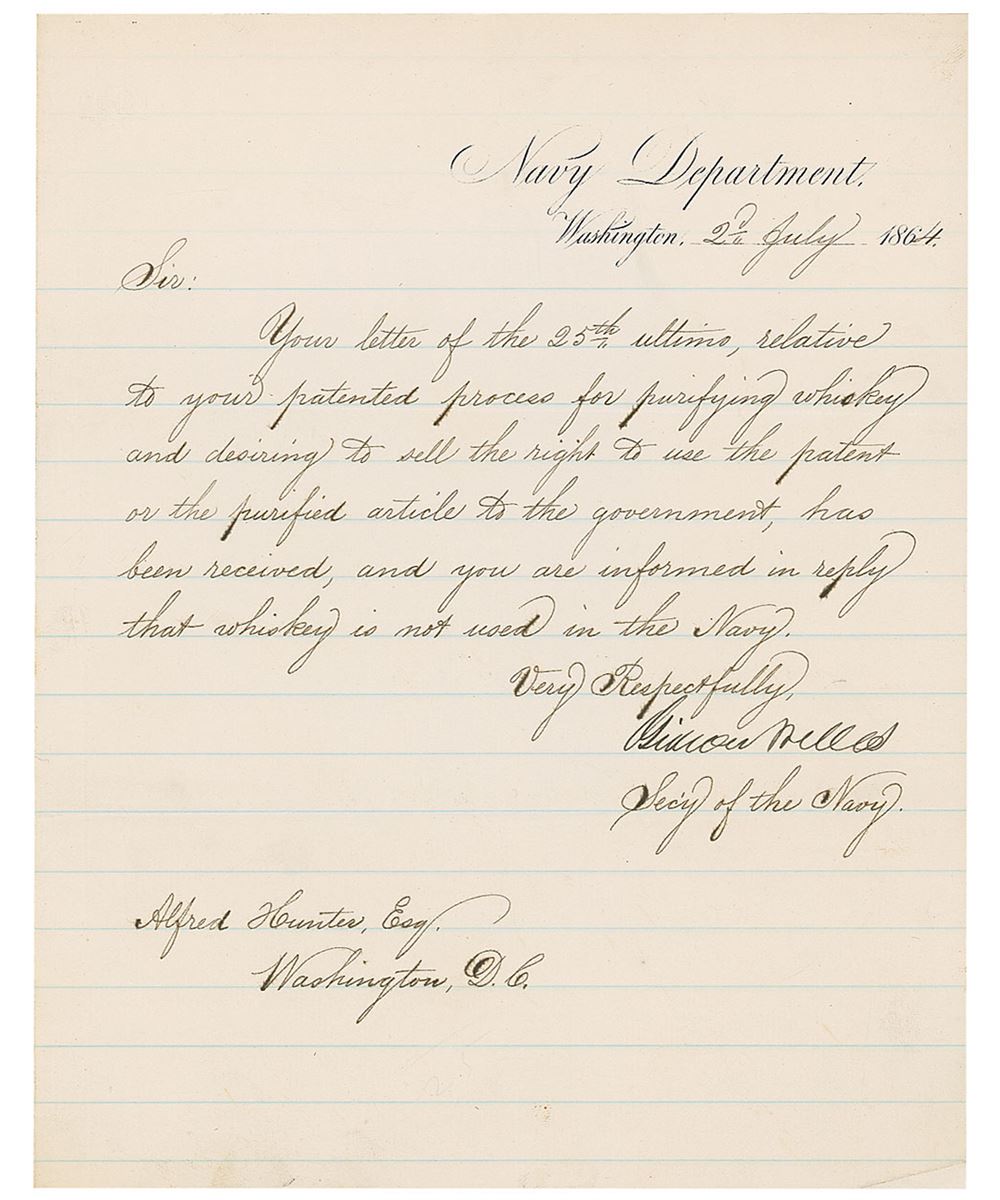 Navy Department.
Washington, 2d July 1864.
Sir:
Your letter of the 25th ultimo, relative
to your patented process for purifying whiskey
and desiring to sell the right to use the patent
or the purified article to the government, has
been received, and you are informed in reply
that whiskey is not used in the Navy.
Very Respectfully,
Gideon Welles
Secy of the Navy.
Alfred Hunter, Esq.
Washington, D.C.